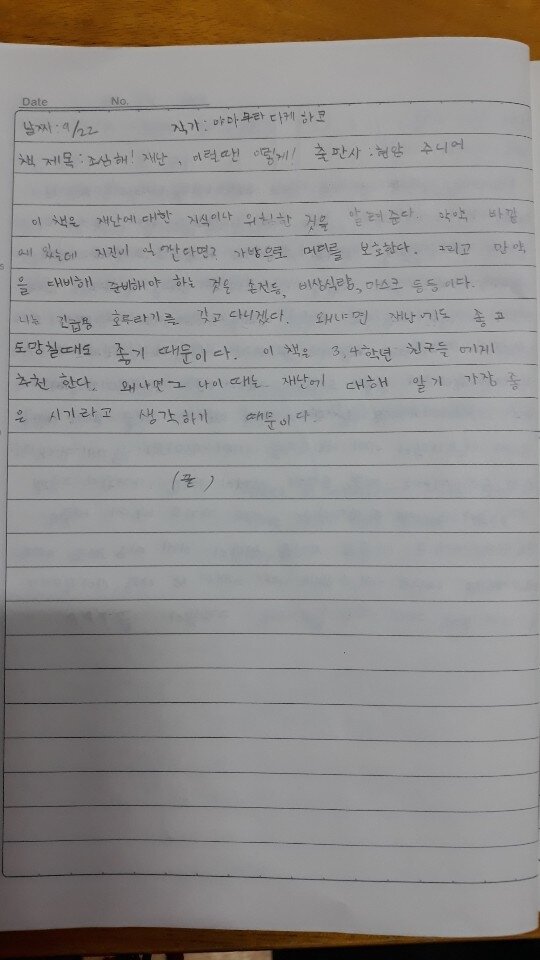 Date No.
날짜: 9/22 작가: 야마무라 다케히코
책 제목: 조심해! 재난, 이럴땐 이렇게! 출판사: 현암 주니어
이 책은 재난에 대한 지식이나 위험한 것을 알려준다. 만약 바깥
에 있는데 지진이 일어난다면? 가방으로 머리를 보호한다. 그리고 만약
을 대비해 준비해야 하는 것은 손전등, 비상식량, 마스크 등등이다.
나는 긴급용 호루라기를 갖고 다니겠다. 왜냐면 재난에도 좋고
도망칠때도 좋기 때문이다. 이 책은 3,4학년 친구들에게
추천 한다. 왜냐면 그 나이 때는 재난에 대해 알기 가장 좋
은 시기라고 생각하기 때문이다.
(끝)